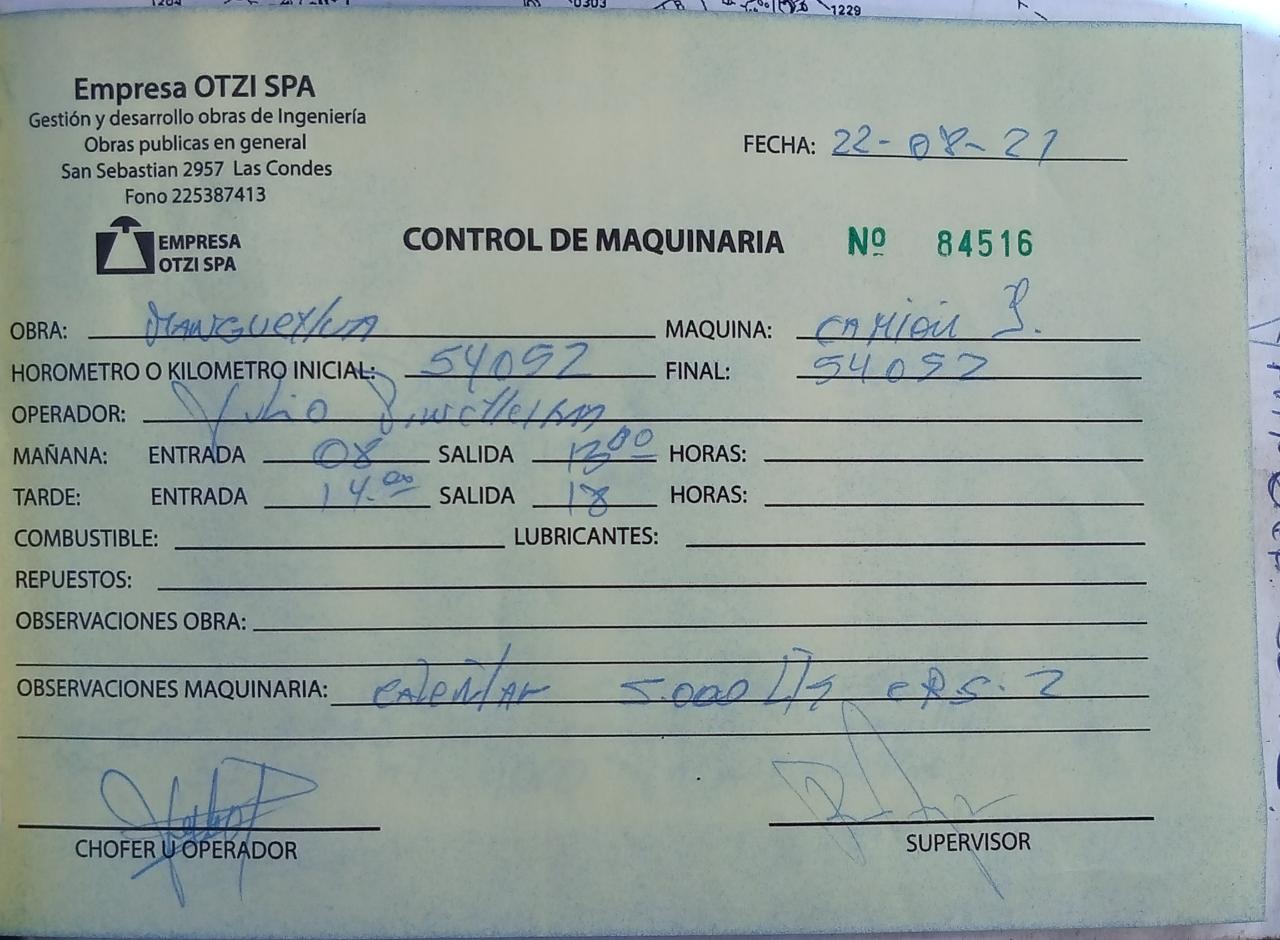 1229
Empresa OTZI SPA
Gestión y desarrollo obras de Ingeniería
Obras publicas en general
San Sebastian 2957 Las Condes
Fono 225387413
EMPRESA
OTZI SPA
FECHA: 22-08-21
CONTROL DE MAQUINARIA Nº 84516
OBRA: MAQUINA: CAMION
HOROMETRO O KILOMETRO INICIAL: 54052 FINAL: 54052
OPERADOR: Julio
MAÑANA: ENTRADA 08 SALIDA 13 00 HORAS:
TARDE: ENTRADA 14.00 SALIDA 18 HORAS:
COMBUSTIBLE: LUBRICANTES:
REPUESTOS:
OBSERVACIONES OBRA:
OBSERVACIONES MAQUINARIA: 5.000 Lts CRS. 2
CHOFER U OPERADOR SUPERVISOR